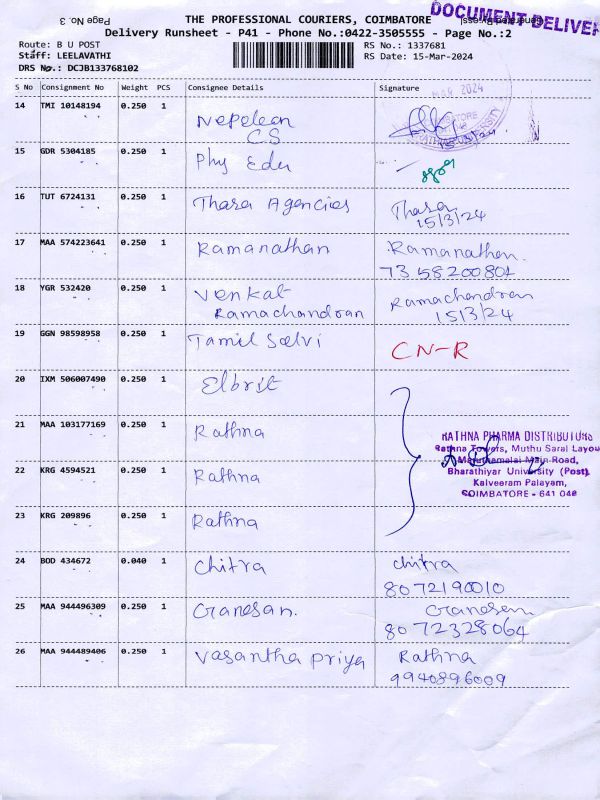 Page No. 3
THE PROFESSIONAL COURIERS, COIMBATORE
DOCUMENT DELIVER
Delivery Runsheet - P41 - Phone No.:0422-3505555 - Page No.:2
Route: B U POST
RS No.: 1337681
Staff: LEELAVATHI
RS Date: 15-Mar-2024
DRS No.: DCJB133768102
S No Consignment No Weight PCS Consignee Details Signature
MAR 2024
14 TMI 10148194 0.250 1 Nepolean
CS
15 GDR 5304185 0.250 1 Phy Edu
16 TUT 6724131 0.250 1 Thasa Agencies Thasa
15/3/24
17 MAA 574223641 0.250 1 Ramanathan Ramanathan.
7358200801
18 YGR 532420 0.250 1 Venkat Ramachandran
Ramachandran 15/3/24
19 GGN 98598958 0.250 1 Tamil Selvi CN-R
20 IXM 506007490 0.250 1 Elbrit
21 MAA 103177169 0.250 1 Rathna
RATHNA PHARMA DISTRIBUTORS
Rathna Towers, Muthu Saral Layou
Maruthamalai Main Road,
22 KRG 4594521 0.250 1 Rathna
Bharathiyar University (Post)
Kalveeram Palayam,
COIMBATORE - 641 046
23 KRG 209896 0.250 1 Rathna
24 BOD 434672 0.040 1 Chitra chitra
8072190010
25 MAA 944496309 0.250 1 Ganesan. Ganesan
8072328064
26 MAA 944489406 0.250 1 Vasantha priya Rathna
9940896009